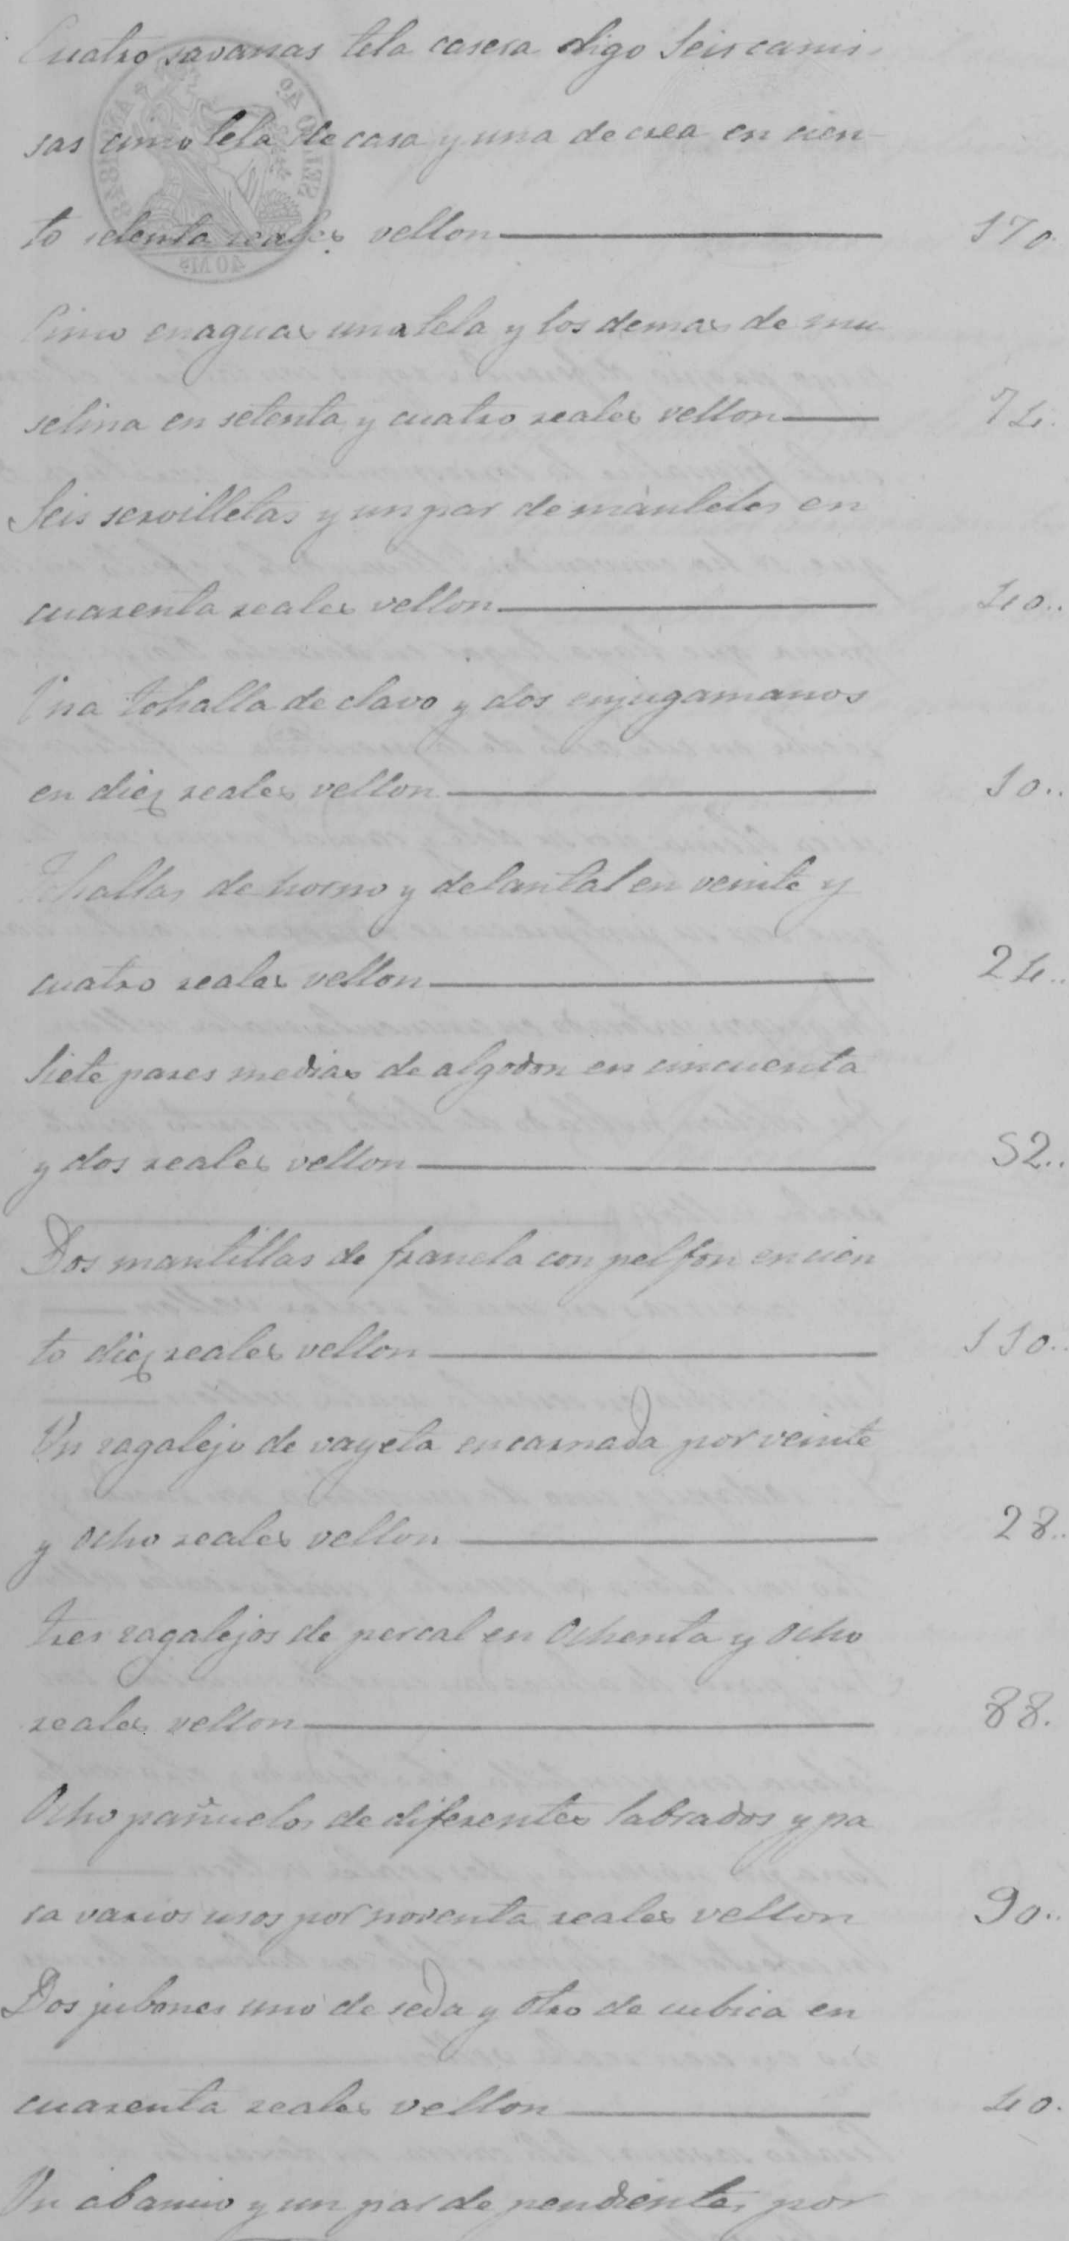 Cuatro savanas tela casera digo Seis cami-
sas cinco tela de casa y una de crea en cien-
to setenta reales vellon 170.
Cinco enaguas una tela y los demas de mu
selina en setenta y cuatro reales vellon 74.
Seis servilletas y un par de manteles en
cuarenta reales vellon 40..
Una tohalla de clavo y dos enjugamanos
en diez reales vellon 10..
Tohallas de horno y delantal en veinte y
cuatro reales vellon 24..
Siete pares medias de algodon en cincuenta
y dos reales vellon 52..
Dos mantillas de franela con pelfon en cien
to diez reales vellon 110..
Un zagalejo de vayeta encarnada por veinte
y ocho reales vellon 28..
tres zagalejos de percal en Ochenta y Ocho
reales vellon 88.
Ocho pañuelos de diferentes labrados y pa
ra varios usos por noventa reales vellon 90..
Dos jubones uno de seda y Otro de cubica en
cuarenta reales vellon 40.
Un abanico y un par de pendientes por